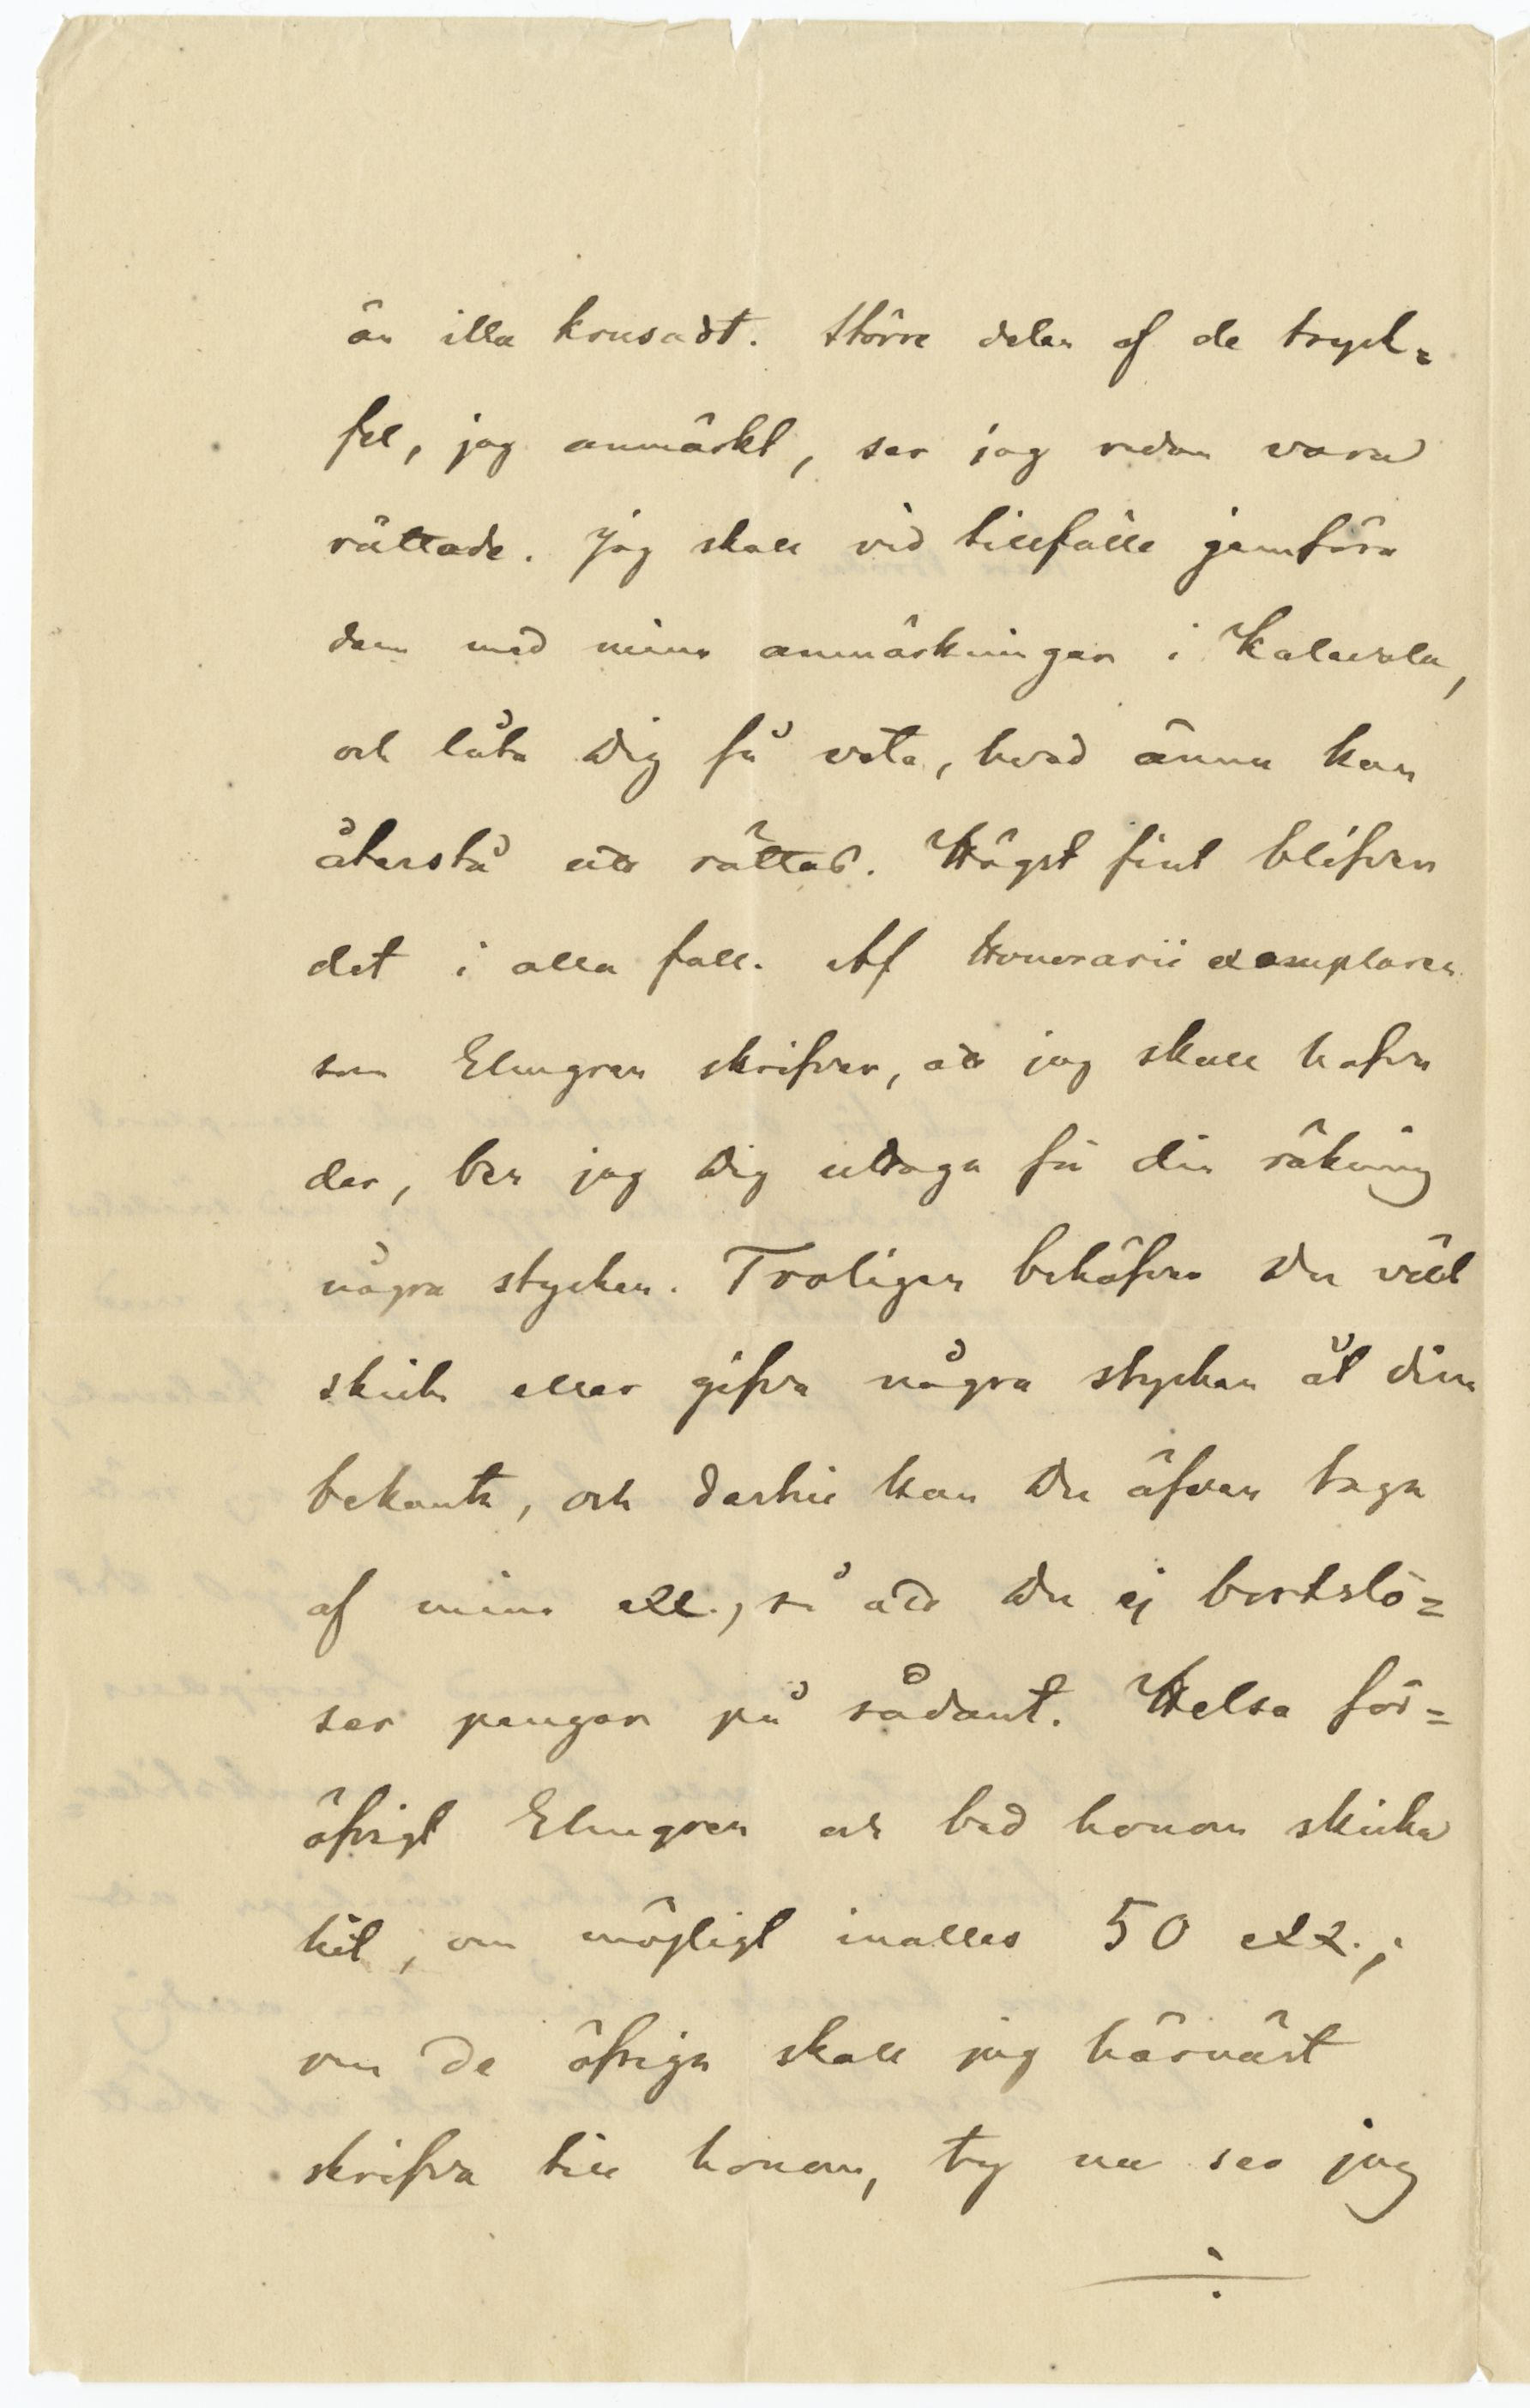 än illa krusadt. Större delen af de tryck=
fel, jag anmärkt, ser jag redan vara
rättade. Jag skall vid tillfälle jemföra
dem med mina anmärkningar i Kalevala,
och låta Dig få veta, hvad ännu kan
återstå att rättas. Högst fint blifver
det i alla fall. Af Honorarii exemplaren
som Elmgren skrifver, att jag skall hafva
der, ber jag Dig uttaga för din räkning
några stycken. Troligen behöfver Du väl
skicka eller gifva några stycken åt dina
bekanta, och dertill kan Du äfven taga
af mina exx., så att Du ej bortslö=
sar pengar på sådant. Helsa för=
öfrigt Elmgren och bed honom skicka
hit, om möjligt inalles 50 exx.;
om de öfriga skall jag härnäst
skrifva till honom, ty nu ser jag
÷